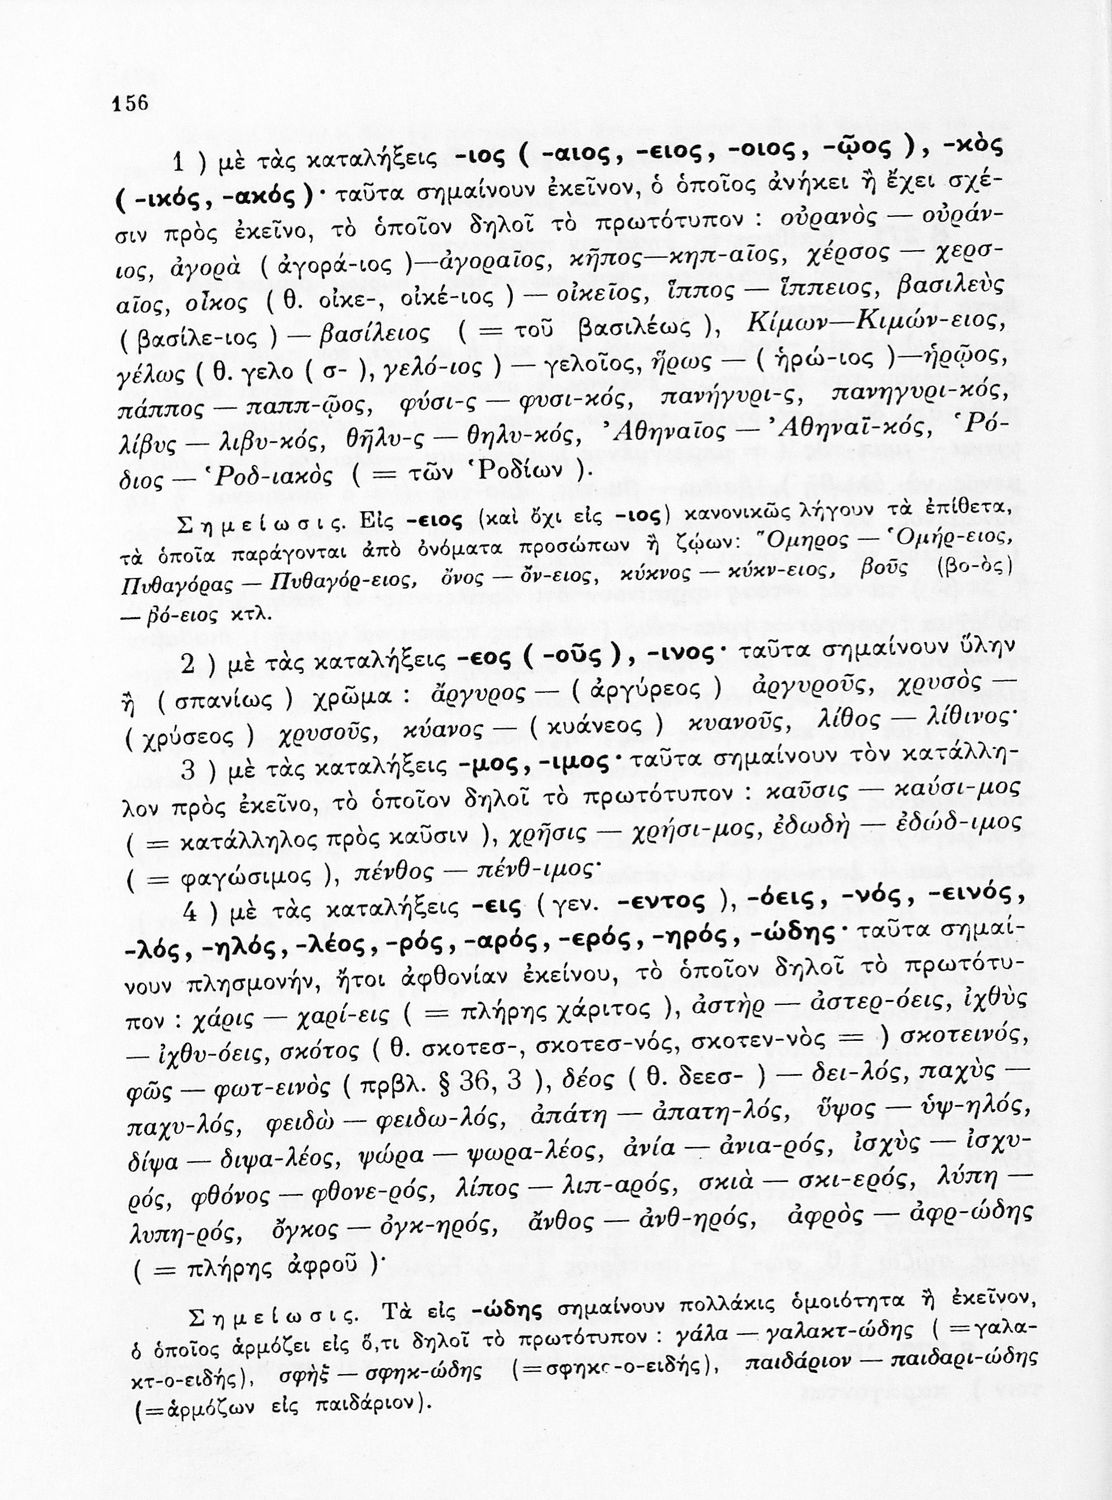 156
1 ) μὲ τὰς καταλήξεις -ιος ( -αιος, -ειος, -οιος, -ῷος ), -κὸς
( -ικός, -ακός )· ταῦτα σημαίνουν ἐκεῖνον, ὁ ὁποῖος ἀνήκει ἢ ἔχει σχέ-
σιν πρὸς ἐκεῖνο, τὸ ὁποῖον δηλοῖ τὸ πρωτότυπον : οὐρανὸς — οὐράν-
ιος, ἀγορὰ ( ἀγορά-ιος )—ἀγοραῖος, κῆπος—κηπ-αῖος, χέρσος — χερσ-
αῖος, οἶκος ( θ. οἰκε-, οἰκέ-ιος ) — οἰκεῖος, ἵππος — ἵππειος, βασιλεὺς
( βασίλε-ιος ) — βασίλειος ( = τοῦ βασιλέως ), Κίμων—Κιμών-ειος,
γέλως ( θ. γελο ( σ- ), γελό-ιος ) — γελοῖος, ἥρως — ( ἡρώ-ιος )—ἡρῷος,
πάππος — παππ-ῷος, φύσι-ς — φυσι-κός, πανήγυρι-ς, πανηγυρι-κός,
λίβυς — λιβυ-κός, θῆλυ-ς — θηλυ-κός, Ἀθηναῖος — Ἀθηναϊ-κός, Ῥό-
διος — Ῥοδ-ιακὸς ( = τῶν Ῥοδίων ).
Σημείωσις. Εἰς -ειος (καὶ ὄχι εἰς -ιος) κανονικῶς λήγουν τὰ ἐπίθετα,
τὰ ὁποῖα παράγονται ἀπὸ ὀνόματα προσώπων ἢ ζῴων: Ὅμηρος — Ὁμήρ-ειος,
Πυθαγόρας — Πυθαγόρ-ειος, ὄνος — ὄν-ειος, κύκνος — κύκν-ειος, βοῦς (βο-ὸς)
— βό-ειος κτλ.
2 ) μὲ τὰς καταλήξεις -εος ( -οῦς ), -ινος· ταῦτα σημαίνουν ὕλην
ἢ ( σπανίως ) χρῶμα : ἄργυρος — ( ἀργύρεος ) ἀργυροῦς, χρυσὸς —
( χρύσεος ) χρυσοῦς, κύανος — ( κυάνεος ) κυανοῦς, λίθος — λίθινος·
3 ) μὲ τὰς καταλήξεις -μος, -ιμος· ταῦτα σημαίνουν τὸν κατάλλη-
λον πρὸς ἐκεῖνο, τὸ ὁποῖον δηλοῖ τὸ πρωτότυπον : καῦσις — καύσι-μος
( = κατάλληλος πρὸς καῦσιν ), χρῆσις — χρήσι-μος, ἐδωδὴ — ἐδώδ-ιμος
( = φαγώσιμος ), πένθος — πένθ-ιμος·
4 ) μὲ τὰς καταλήξεις -εις ( γεν. -εντος ), -όεις, -νός, -εινός,
-λός, -ηλός, -λέος, -ρός, -αρός, -ερός, -ηρός, -ώδης· ταῦτα σημαί-
νουν πλησμονήν, ἤτοι ἀφθονίαν ἐκείνου, τὸ ὁποῖον δηλοῖ τὸ πρωτότυ-
πον : χάρις — χαρί-εις ( = πλήρης χάριτος ), ἀστὴρ — ἀστερ-όεις, ἰχθὺς
— ἰχθυ-όεις, σκότος ( θ. σκοτεσ-, σκοτεσ-νός, σκοτεν-νὸς = ) σκοτεινός,
φῶς — φωτ-εινὸς ( πρβλ. § 36, 3 ), δέος ( θ. δεεσ- ) — δει-λός, παχὺς —
παχυ-λός, φειδὼ — φειδω-λός, ἀπάτη — ἀπατη-λός, ὕψος — ὑψ-ηλός,
δίψα — διψα-λέος, ψώρα — ψωρα-λέος, ἀνία — ἀνια-ρός, ἰσχὺς — ἰσχυ-
ρός, φθόνος — φθονε-ρός, λίπος — λιπ-αρός, σκιὰ — σκι-ερός, λύπη —
λυπη-ρός, ὄγκος — ὀγκ-ηρός, ἄνθος — ἀνθ-ηρός, ἀφρὸς — ἀφρ-ώδης
( = πλήρης ἀφροῦ )·
Σημείωσις. Τὰ εἰς -ώδης σημαίνουν πολλάκις ὁμοιότητα ἢ ἐκεῖνον,
ὁ ὁποῖος ἁρμόζει εἰς ὅ,τι δηλοῖ τὸ πρωτότυπον : γάλα — γαλακτ-ώδης ( =γαλα-
κτ-ο-ειδής), σφὴξ — σφηκ-ώδης (=σφηκ-ο-ειδής), παιδάριον — παιδαρι-ώδης
(=ἁρμόζων εἰς παιδάριον).